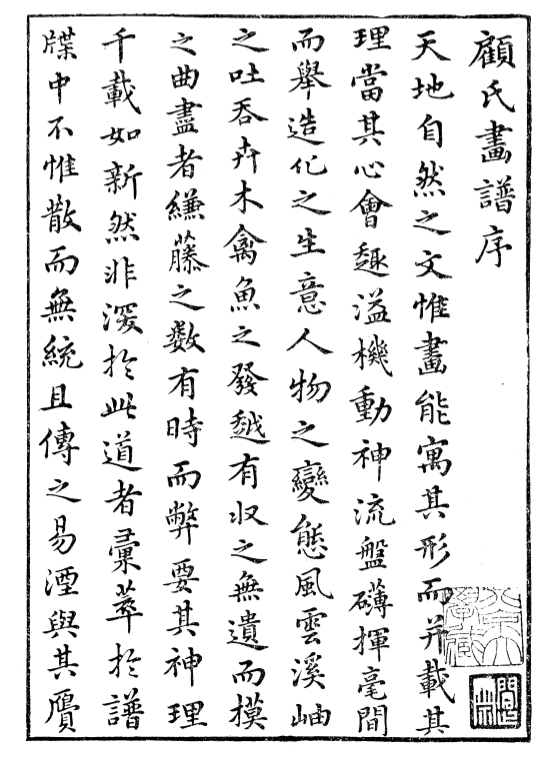 顧氏畫譜序
天地自然之文惟畫能寓其形而并載其
理當其心會趣溢機動神流盤礴揮毫間
而舉造化之生意人物之變態風雲溪岫
之吐吞卉木禽魚之發越有收之無遺而模
之曲盡者縑藤之数有時而弊要其神理
千載如新然非深於此道者彙萃於譜
牒中不惟散而無統且傳之易湮與其贗